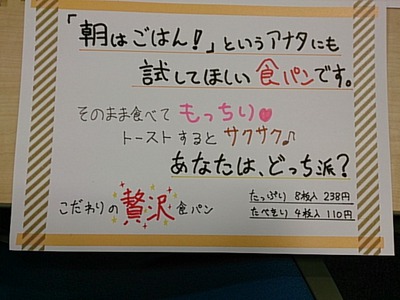 「朝はごはん!」というアナタにも
試してほしい食パンです。
そのまま食べてもっちり♥
トーストするとサクサク♪
あなたは、どっち派?
こだわりの贅沢食パン
たっぷり 8枚入 238円
たべきり 4枚入 110円